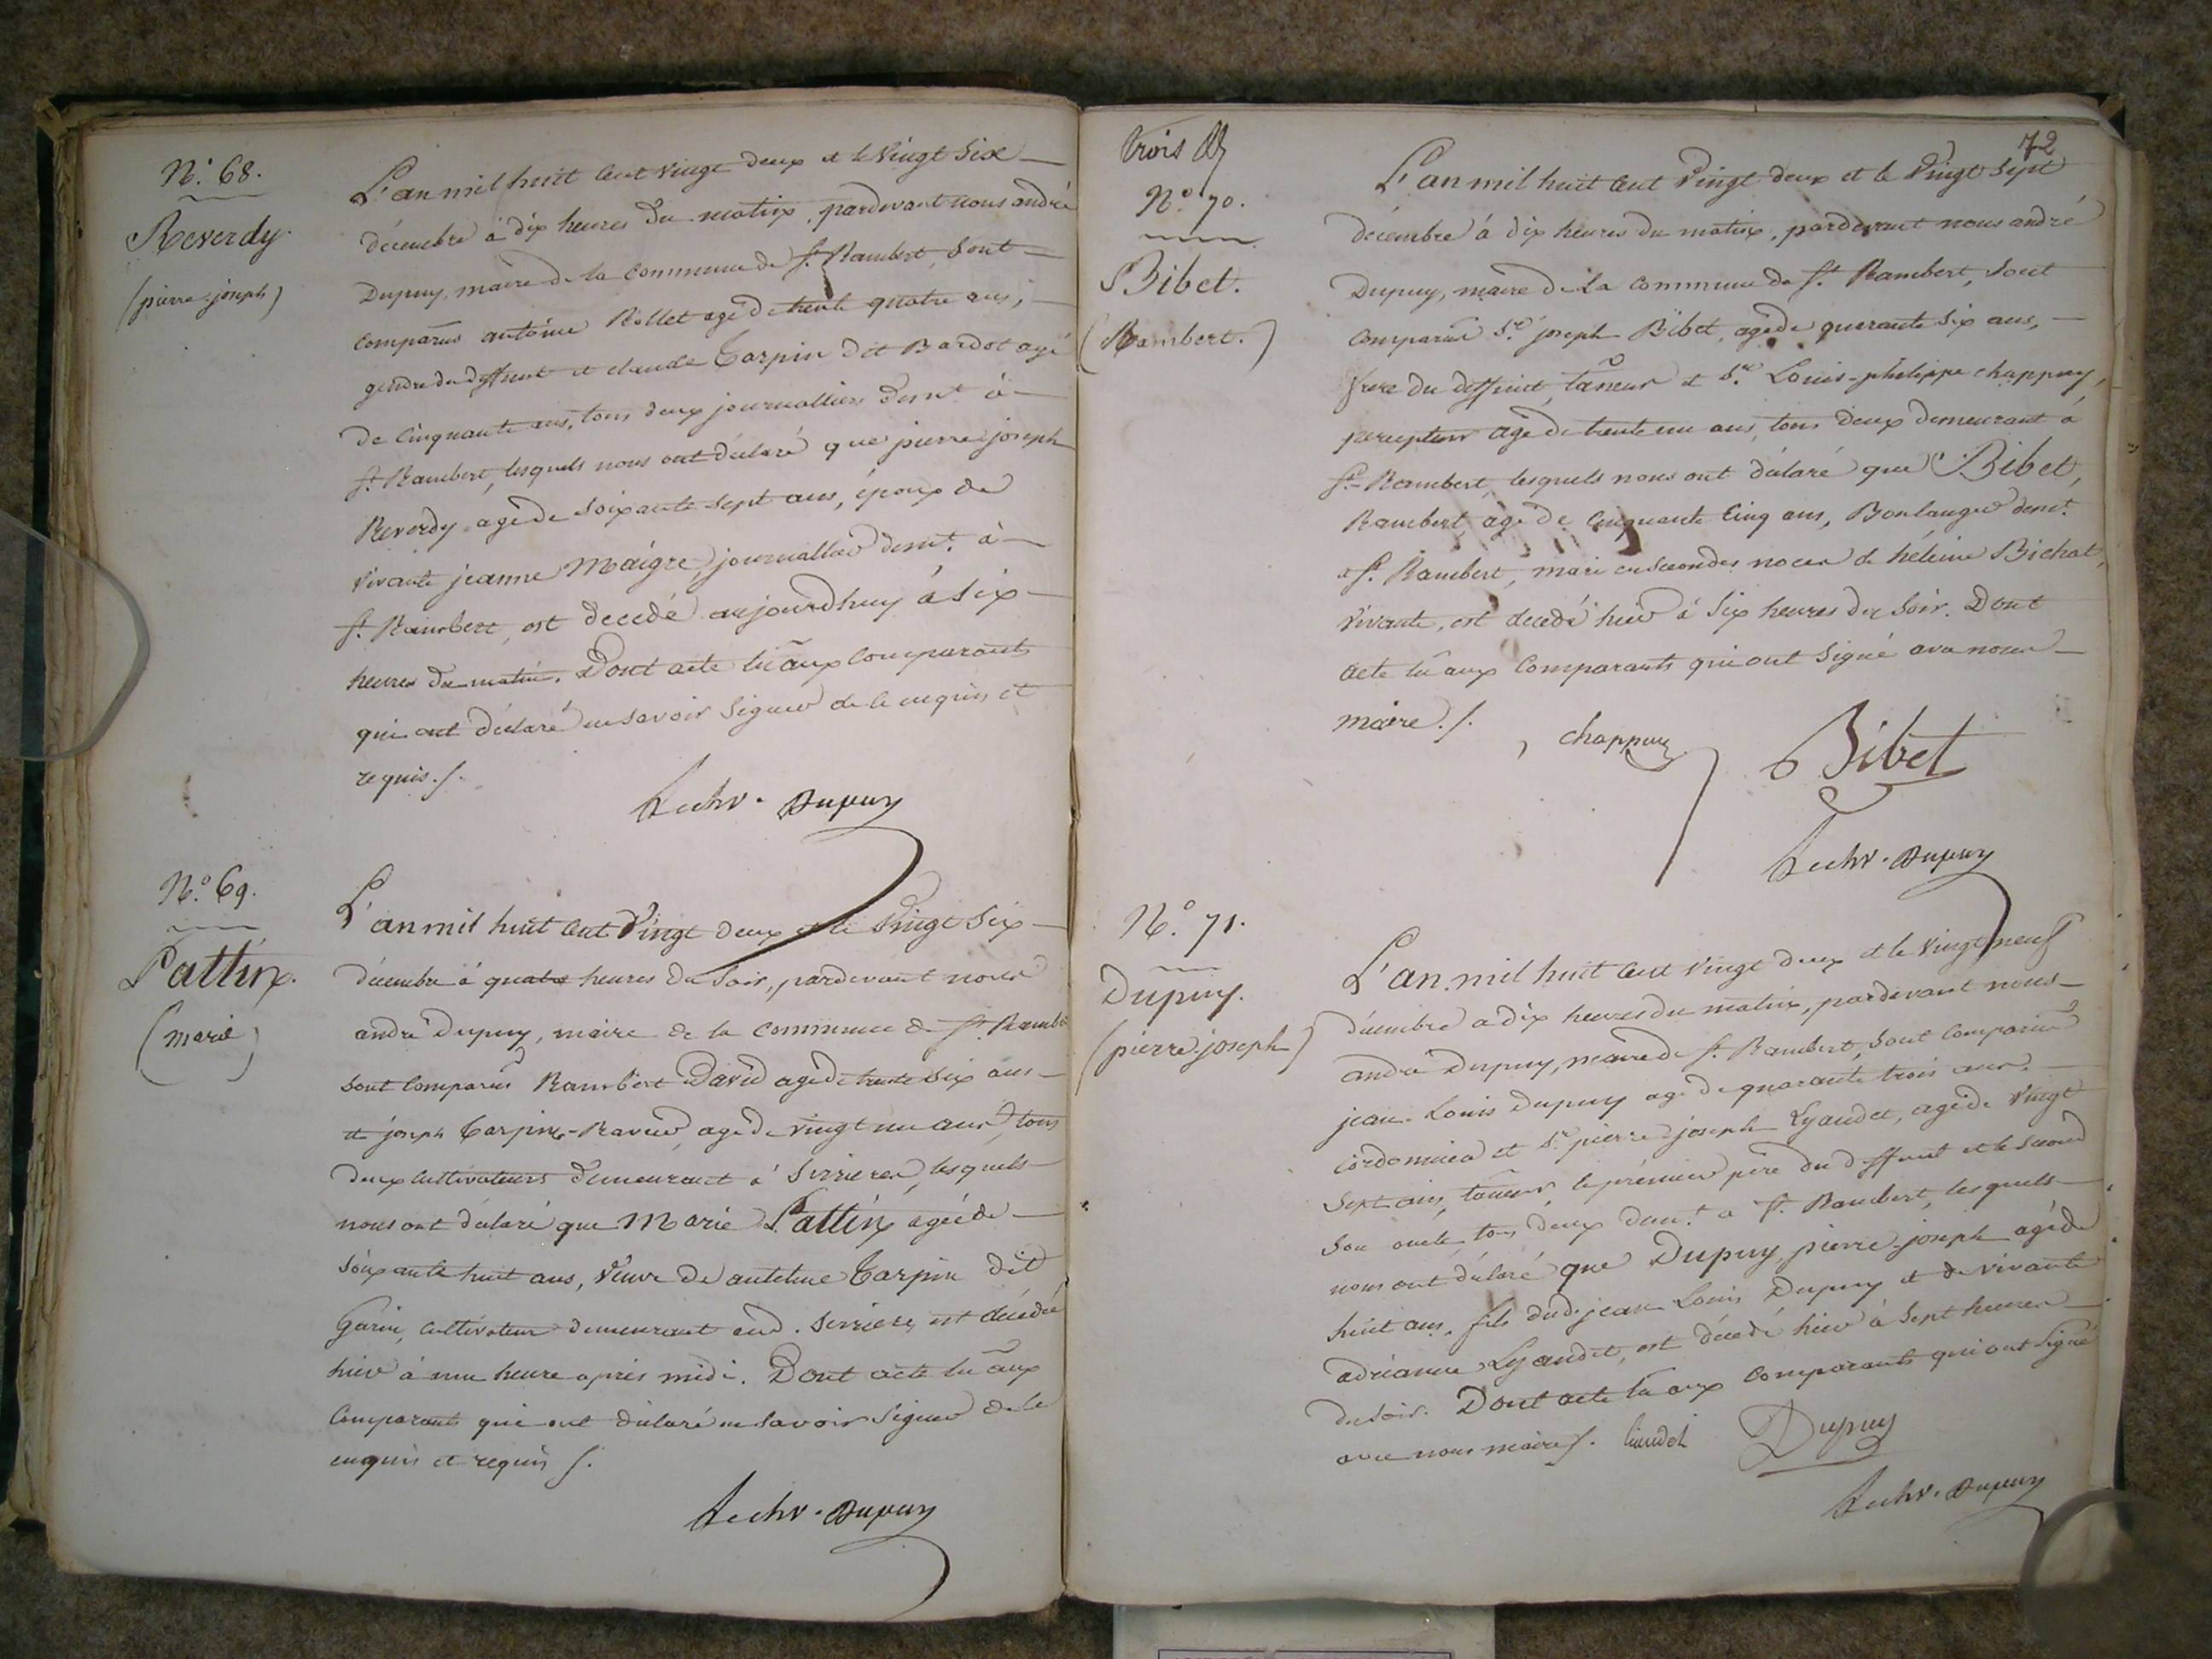 N.° 68.
Reverdy.
(pierre-joseph)
L'an mil huit cent vingt deux et le vingt six
décembre à dix heures du matin, pardevant nous andré
Dupuy, maire de la commune de St. Rambert, sont
comparus antoine Rollet agé de trente quatre ans,
gendre du deffunt et claude Carpin dit Bardot agé
de cinquante ans, tous deux journalliers demt. à
St. Rambert, lesquels nous ont déclaré que pierre joseph
Reverdy agé de soixante sept ans, époux de
vivante jeanne Maigre, journallier demt. à
St. Rambert, est decedé aujourdhuy à six
heures du matin. Dont acte lu aux comparants
qui ont déclaré ne savoir signer de ce enquis et
requis./.
Dupuy
N.° 69.
Pattin.
(marie)
L'an mil huit cent vingt deux et le vingt six
décembre à quatre heures du soir, pardevant nous
andré Dupuy, maire de la commune de St. Rambert
sont comparus Rambert David agé de trente six ans
et joseph Carpin-Ravier, agé de vingt un ans, tous
deux cultivateurs demeurant à Serrieres, lesquels
nous ont déclaré que Marie Pattin agée de
soixante huit ans, veuve de antelme Carpin dit
Garin, cultivateur demeurant aud. Serrieres, est décédée
hier à une heure après midi. Dont acte lu aux
comparants qui ont déclaré ne savoir signer de ce
enquis et requis /.
Dupuy
72
trois
N.° 70.
Bibet.
(Rambert.)
L'an mil huit cent vingt deux et le vingt sept
décembre à dix heures du matin, pardevant nous andré
Dupuy, maire de la commune de St. Rambert, sont
comparus Sr. joseph Bibet, agé de quarante six ans,
frere du deffunt, taneur et Sr. Louis-philippe chappuy,
percepteur agé de trente un ans, tous deux demeurant à
St. Rambert, lesquels nous ont déclaré que Bibet,
Rambert, agé de cinquante cinq ans, Boulanger demt.
à St. Rambert, mari en secondes noces de héleine Bichat,
vivante, est decedé hier à six heures du soir. Dont
acte lu aux comparants qui ont signé avec nous
maire./.
chappuy
Bibet
Dupuy
N.° 71.
Dupuy.
(pierre-joseph)
L'an mil huit cent vingt deux et le vingt neuf
décembre a dix heures du matin, pardevant nous
andré Dupuy, maire de St. Rambert, sont comparus
jean-Louis Dupuy agé de quarante trois ans,
cordonnier et Sr. pierre joseph Lyaudet, agé de vingt
sept ans, taneur, le prémier père du deffunt et le second
son oncle, tous deux demt. a St. Rambert, lesquels
nous ont déclaré que Dupuy, pierre-joseph agé de
huit ans, fils dud. jean Louis Dupuy et de vivante
adrianne Lyaudet, est décedé hier à sept heures
du soir. Dont acte lu aux comparants qui ont signé
avec nous maire/.
liaudet
Dupuy
Dupuy